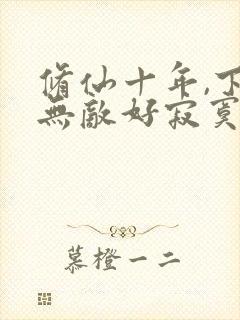 脩仙十年,下
無敵好寂寞
慕橙一二